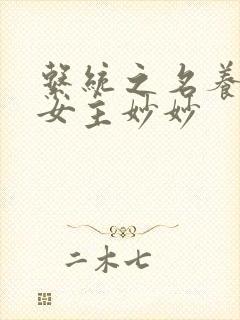 繫統之名養
女主妙妙
二木七